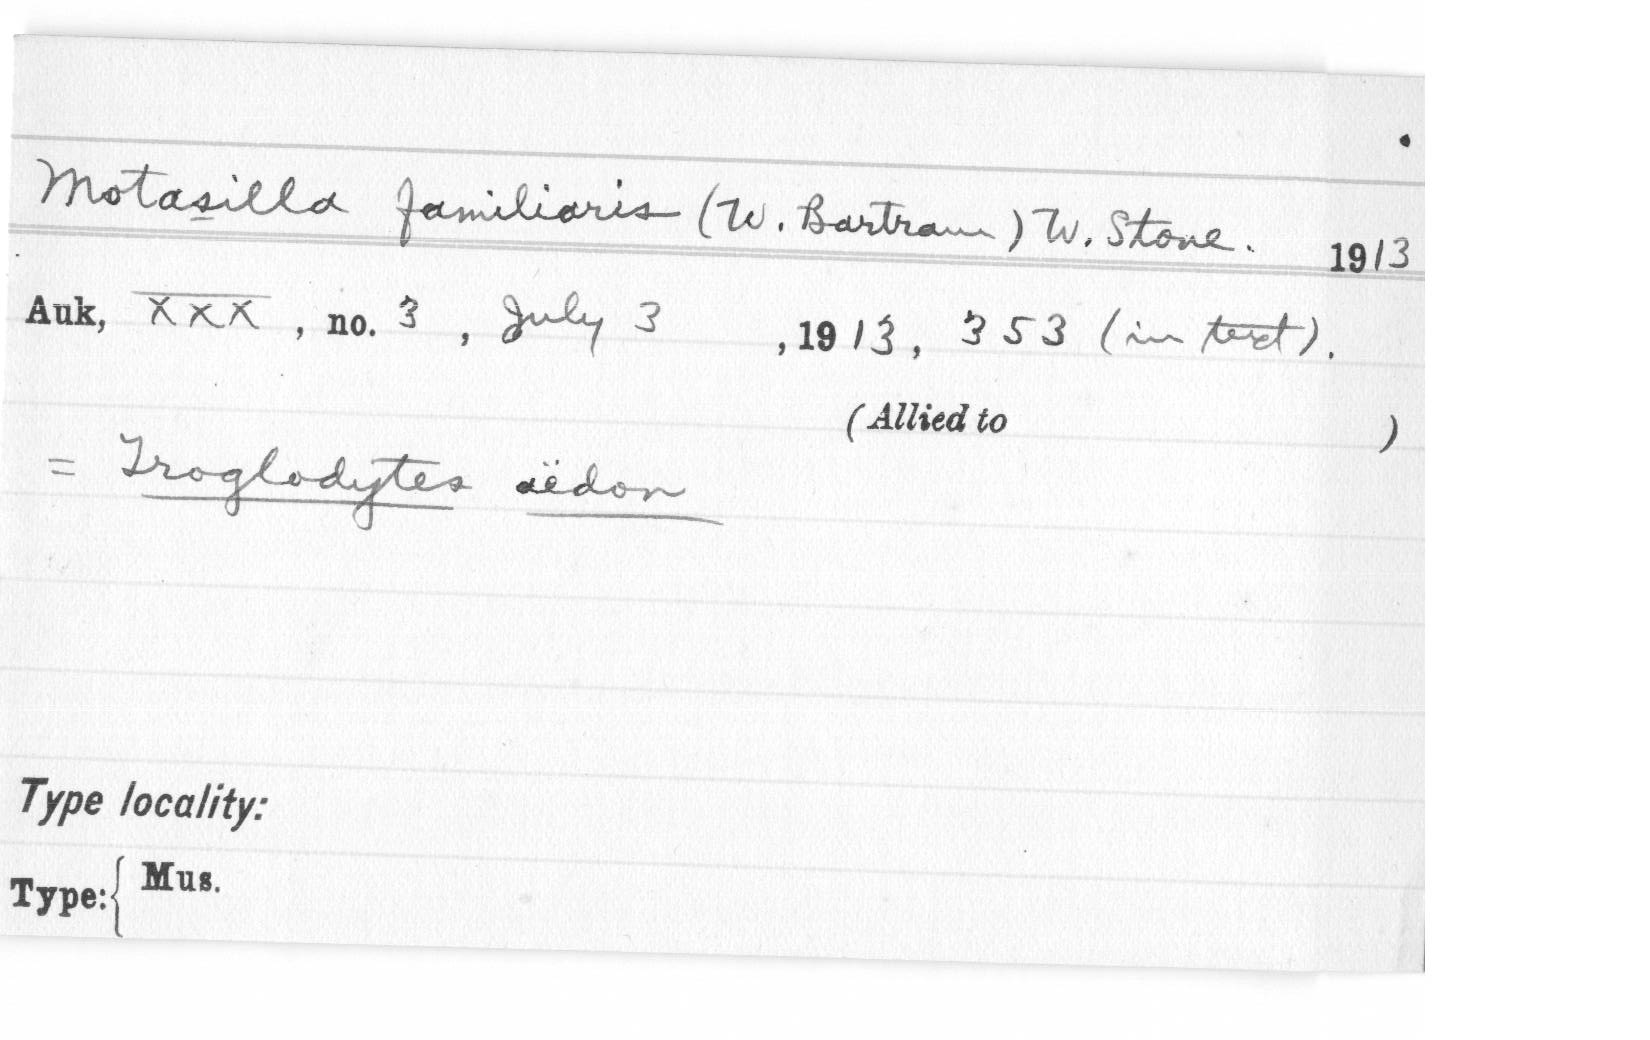 Motasilla familiaris (W. Bartram) W. Stone. 1913
Auk, XXX, no. 3, July 3, 1913, 353 (in text).
(Allied to )
= Troglodytes aëdon
Type locality:
Type: { Mus.